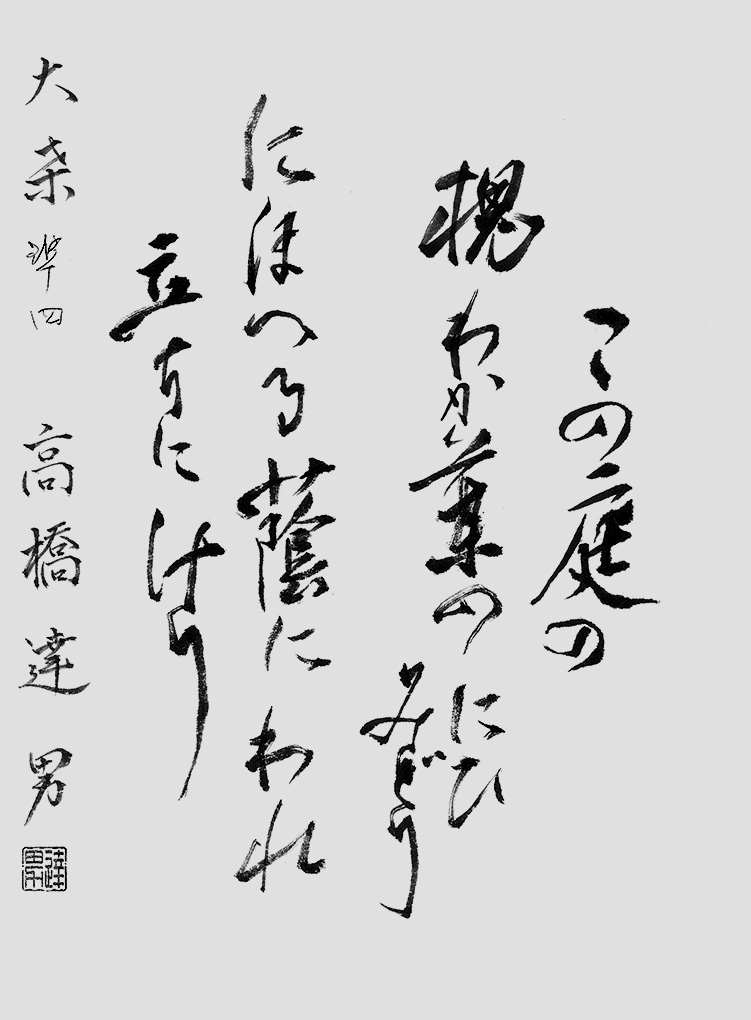 この庭の
槐わか葉の
にひ
みどり
にほへる蔭にわれ
立ちにけり
大桒準四 高橋達男